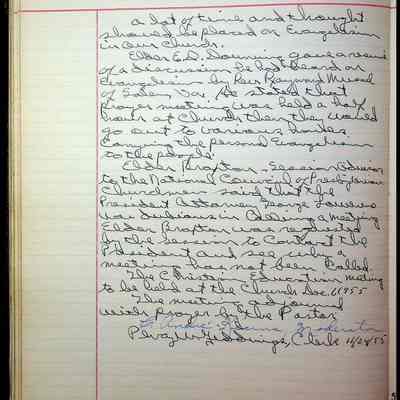 a lot of time and thought
should be placed on Evangelism
in our Church.
Elder E.D. Downing gave a resume
of a discussion he had heard on
Evangelism by Rev Raymond
of Salem, Va. He stated that
prayer meeting was held a half
hour at Church then they would
go out to various homes
Carrying the personal Evangelism
to the people.
Elder Braxton, Session advisor
to the National Council of Presbyterian
Churchmen said that the
President Attorney George
was in calling a meeting
Elder Braxton was requested
by the session to contact the
President and see why a
meeting has not been called.
The Christian Education meeting
to be held at the Church Dec. 6 1955
The meeting adjourned
with prayer by the Pastor
Moderator
Percy W. Giddings, Clerk 11/28/55